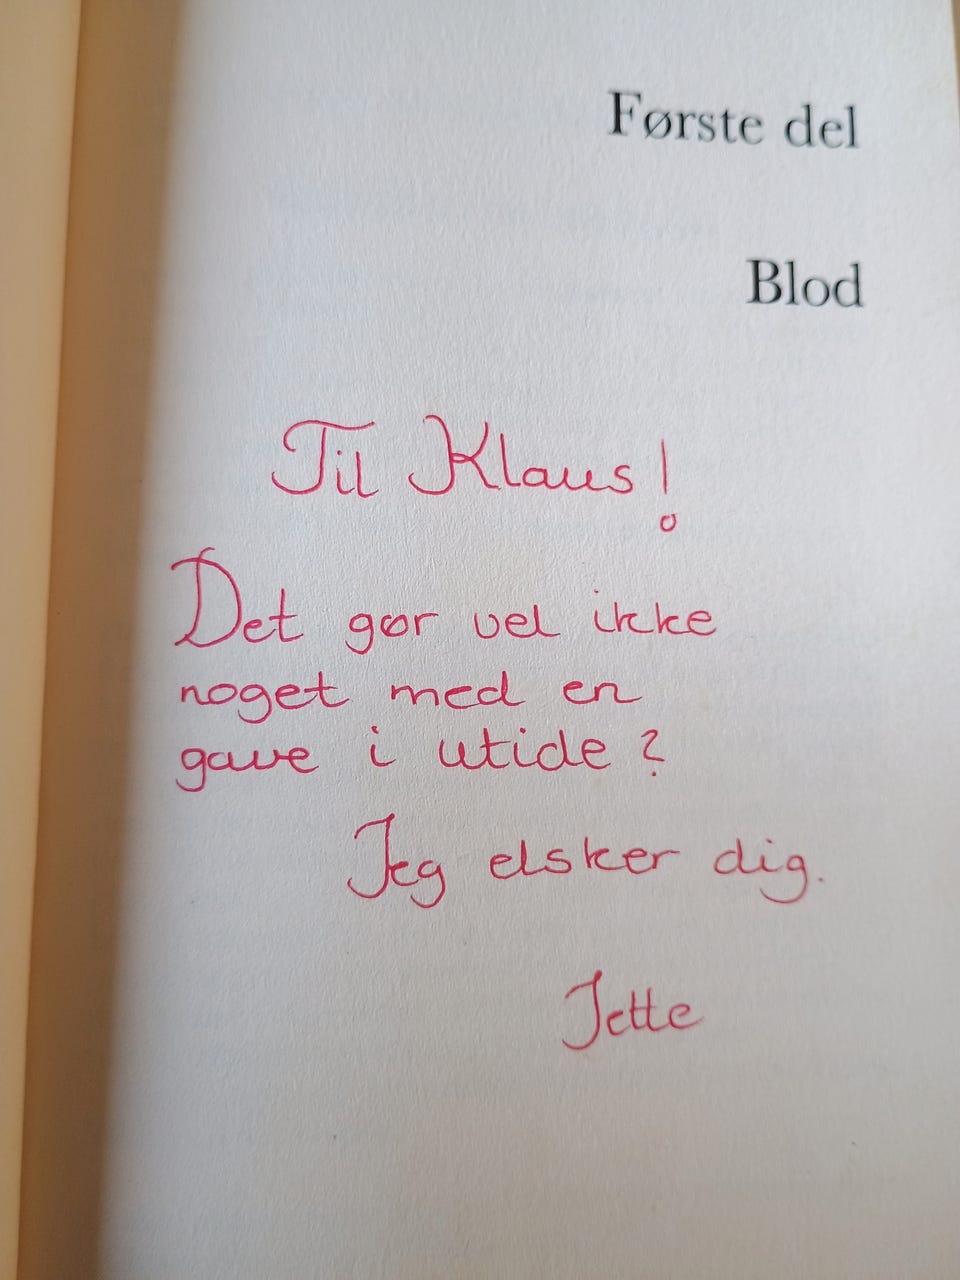 Første del
Blod
Til Klaus!
Det gør vel ikke
noget med en
gave i utide?
Jeg elsker dig.
Jette